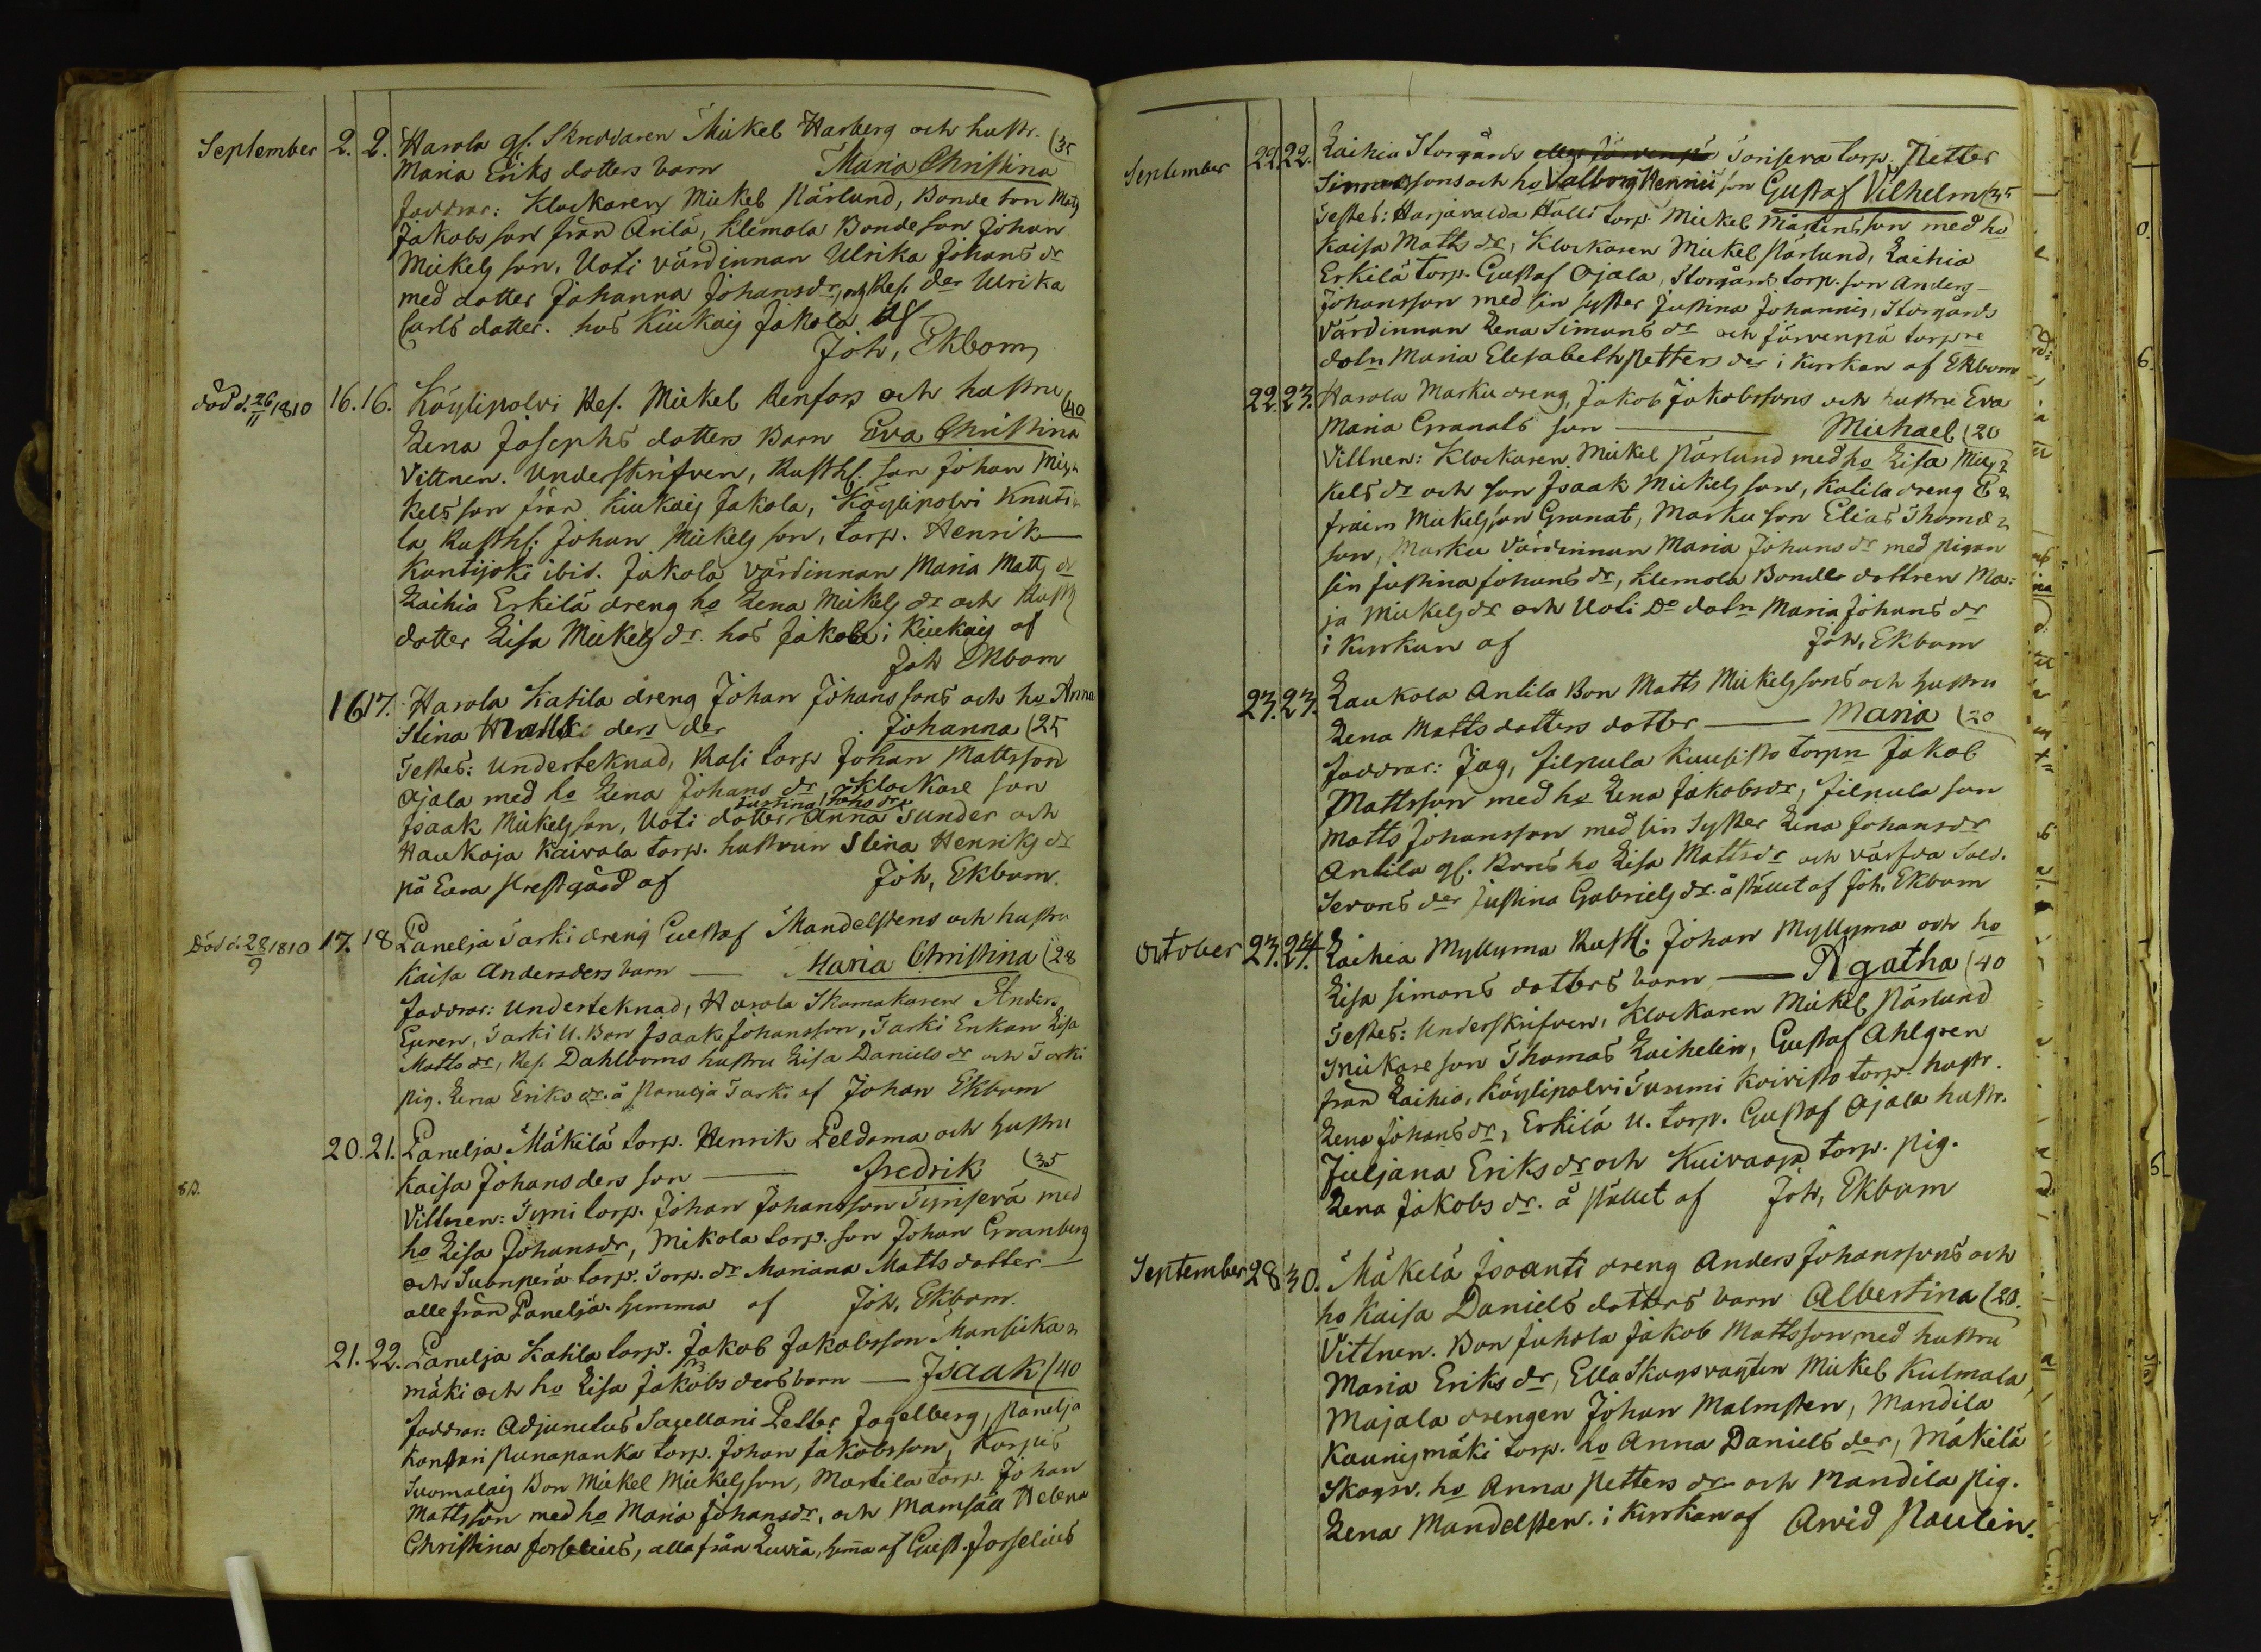 September 2. 2. Harola gl. Skreddaren Mickel Harberg och hustr. (35
Maria Eriks dotters barn Maria Christina
faddrar: Klockaren Mickel Närlund, Bonde son Matts
Jakobs son från Anila, Klemola Bonde son Johan
Mickels son, Uoti värdinnan Ulrika Johans dr
med dotter Johanna Johansdr, och Ref. der Ulrika
Carls dotter. hos Kiukais Jakola af
Joh, Ekbom
död d. 26/11 1810 16. 16. Köylipolvi Ref. Mickel Renfors och hustru (40
Lena Josephs dotters Barn Eva Christina
Vittnen. Underskrifven, Rusth. son Johan Mic-
kels son från Kiukais Jakola, Köylipolvi Knuti-
la Rusthl: Johan Mickels son, torp. Henrik
Kantijoki ibid. Jakola värdinnan Maria Matts dr
Laihia Erkilä dreng ho Lena Mickels dr och Rusth
dotter Lisa Mickels dr. hos Jakola i Kiukais af
Joh Ekbom
16 17. Harola Katila dreng Johan Johanssons och ho Anna
Stina ders der Johanna (25
Testes: Underteknad, Rasi torp Johan Mattsson
Ojala med ho Lena Johans dr, Klockare son
Justina Johs dr
Isaak Mickelsson, Uoti dotter Anna Sunder och
Haukoja Kaivola torp. hustrun Stina Henriks dr
på Eura Prestgård af Joh, Ekbom.
Död d. 28/9 1810 17. 18 Panelja Tarki dreng Gustaf Mandelstens och hustru
Kaisa Andersders barn — Maria Christina (28
faddrar: Underteknad, Harola Skomakaren Anders
Euren, Tarki U. Bon Isaak Johansson, Tarki Enkan Lisa
Matts dr, Ref. Dahlboms hustru Lisa Daniels dr och Tarki
pig. Lena Eriks dr. å Panelja Tarki af Johan Ekbom
20. 21. Panelja Mäkilä torp. Henrik Peldoma och hustru
Kaisa Johansders son — Fredrik (35
Vittnen: Tyni torp. Johan Johansson Tyniperä med
ho Lisa Johansdr, Mikola torp. son Johan Granberg
och Suonperä torp. Torp. dr Mariana Matts dotter —
alle från Panelja. hemma af Joh, Ekbom.
21. 22. Panelja Katila torp. Jakob Jakobsson Mansika-
mäki och ho Lisa Jakobs ders barn — Isaak (40
faddrar: Adjunctus Sacellani Petter Fagelberg, Panelja
Kansari Punapanka torp. Johan Jakobsson, Korpis
Suomalais Bon Mickel Mickelsson, Martila torp. Johan
Mattsson med ho Maria Johansdr, och Mamsäll Helena
Christina Forselius, alla från Luvia, hema af Gust. Forselius
September 22. 22. Laihia Storgårds eller Järvenpä Toriseva torp. Petter
Simonssons och ho Valborg Hennis son Gustaf Vilhelm (35
Testes: Harjavalda Hälli torp. Mickel Mårtens son med ho
Kaisa Matts dr, Klockaren Mickel Närlund, Laihia
Erkilä torp. Gustaf Ojala, Storgårds torp. son Anders
Johansson med sin syster Justina Johannis, Storgårds
Värdinnan Lena Simons dr och Järvenpä torpre
dotn Maria Elisabeth Petters der i Kyrkan af Ekbom
22. 23. Harola Marku dreng, Jakob Jakobssons och hustru Eva
Maria Granats son — Michael (20
Vittnen: Klockaren Mickel Närlund med ho Lisa Mic-
kels dr och son Isaak Mickels son, Katila dreng E-
fraim Mickelsson Granat, Marku son Elias Thomæ-
son, Marku Värdinnan Maria Johans dr med pigan
sin Justina Johans dr, Klemola Bonde dottren Ma-
ja Mickels dr och Uoti Do dotn Maria Johans dr
i Kyrkan af Joh, Ekbom
23. 23. Laukola Antila Bon Matts Mickelssons och hustru
Lena Matts dotters dotter — Maria (20
faddrar: Jag, Filpula Kuusisto torpn Jakob
Mattsson med ho Lena Jakobsdr, Filpula son
Matts Johansson med sin Syster Lena Johansdr
Antila gl. Bons ho Lisa Mattsdr och värfda Sold.
Serons der Justina Gabriels dr. å stället af Joh. Ekbom
October 23. 24. Laihia Myllyma Rusth: Johan Myllyma och ho
Lisa Simons dotters barn — Agatha (40
Testes: Underskrifven, Klockaren Mickel Närlund
Snickare son Thomas Laihelin, Gustaf Ahlgren
från Laihia, Köylipolvi Tuomi Koivisto torp. hustr.
Lena Johans dr, Erkilä U. torp. Gustaf Ojala hustr.
Juljana Eriks dr och Kuivaoja torp. pig.
Lena Jakobs dr. å stället af Joh, Ekbom
September 28 30. Mäkelä Isoanti dreng Anders Johanssons och
ho Kaisa Daniels dotters barn Albertina (20.
Vittnen. Bon Juhola Jakob Mattsson med hustru
Maria Eriks dr, Ella Skogsvagten Mickel Kulmala,
Majala drengen Johan Malmsten, Mandila
Kaunismäki torp. ho Anna Daniels der, Mäkilä
Skogv. ho Anna Petters dr och Mandila pig.
Lena Mandelsten. i Kyrkan af Arvid Paulin.